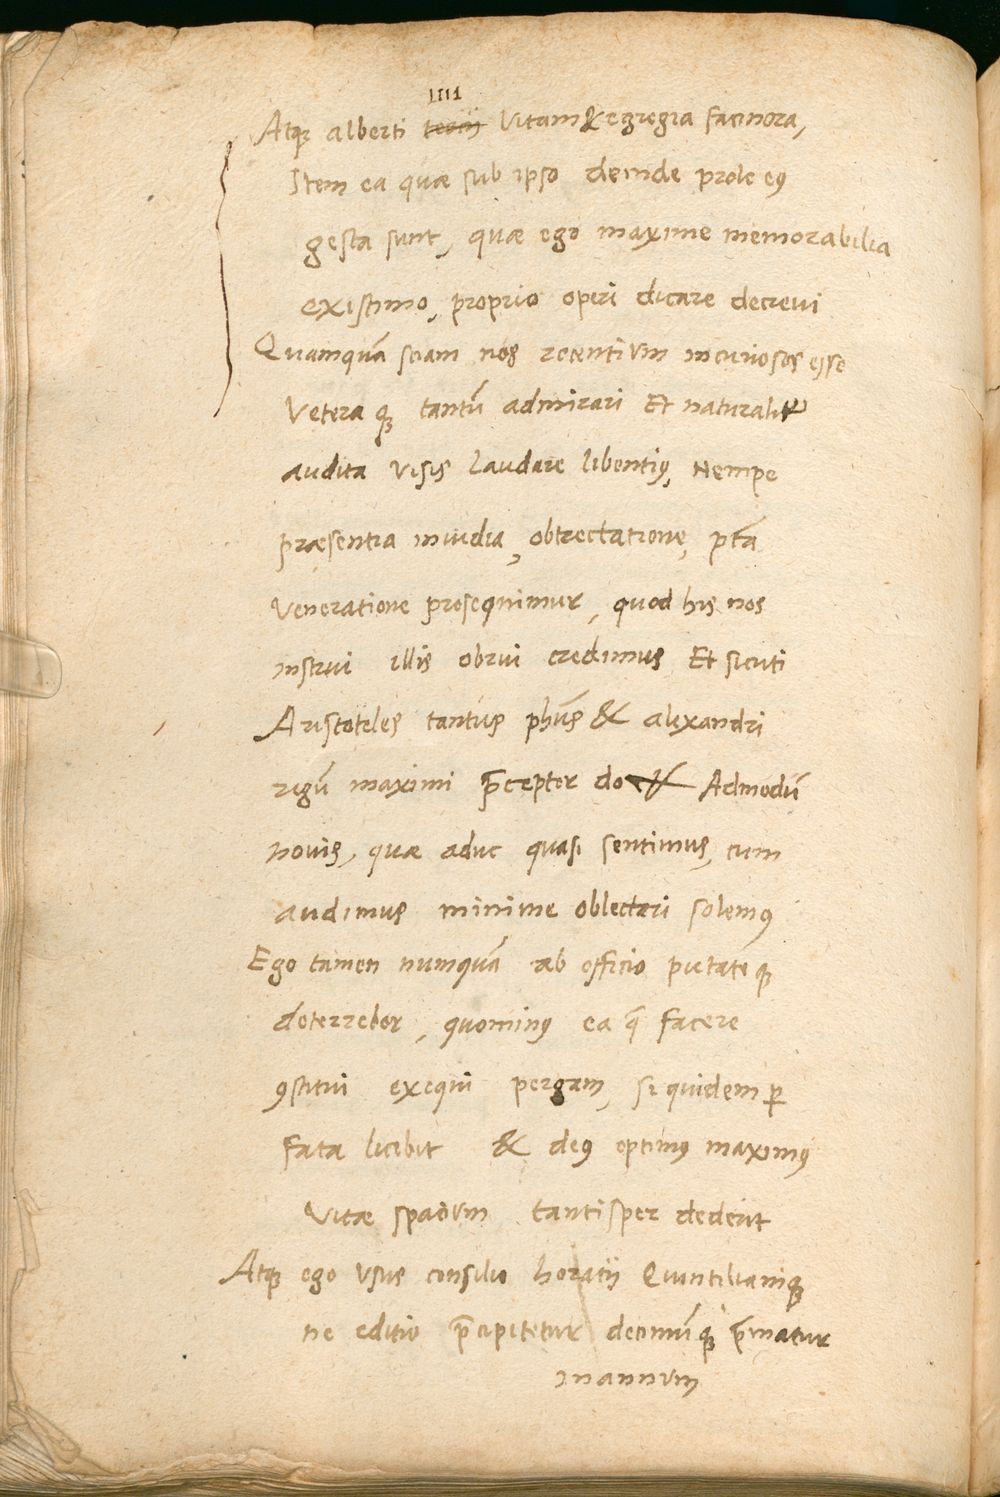 IIII
Atqꝫ alberti tercij Vitam & egregia facinora,
Item ea quæ sub ipso deinde prole eꝰ
gesta sunt, quæ ego maxime memorabilia
existimo, proprio operi dicare decrevi
Quamquā sciam nos recentium incuriosos esse
Vetera qꝫ tantū admirari Et naturaliter
audita visis laudare libentiꝰ, Nempe
præsentia inuidia, obtrectatione, pt̄a
Veneratione prosequimur, quod his nos
instrui illis obrui credimus Et sicuti
Aristoteles tantus phūs & alexandri
regū maximi p̄ceptor Admodū
nouis, quæ aduc quasi sentimus, cum
audimus minime oblectari solemꝰ
Ego tamen numquā ab officio pietate qꝫ
deterrebor, quominꝰ ea q̄ facere
ꝯstitui exequi pergam, si quidem ꝑ
fata licebit & deꝰ optimꝰ maximꝰ
Vitæ spacium tantisper dederit
Atqꝫ ego usus consilio horatij Quintilianiqꝫ
ne editio p̄cipitetur decimūqꝫ p̄matur
in annum